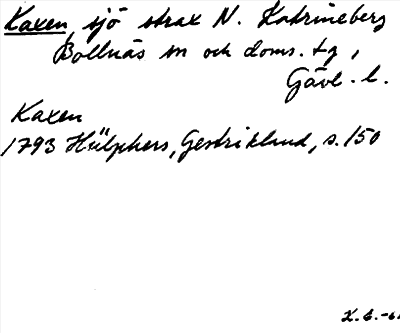 Kaxen, sjö strax N. Katrineberg
Bollnäs sn och doms. tg,
Gävl. l.
Kaxen
1793 Hülphers, Gestrikland, s. 150